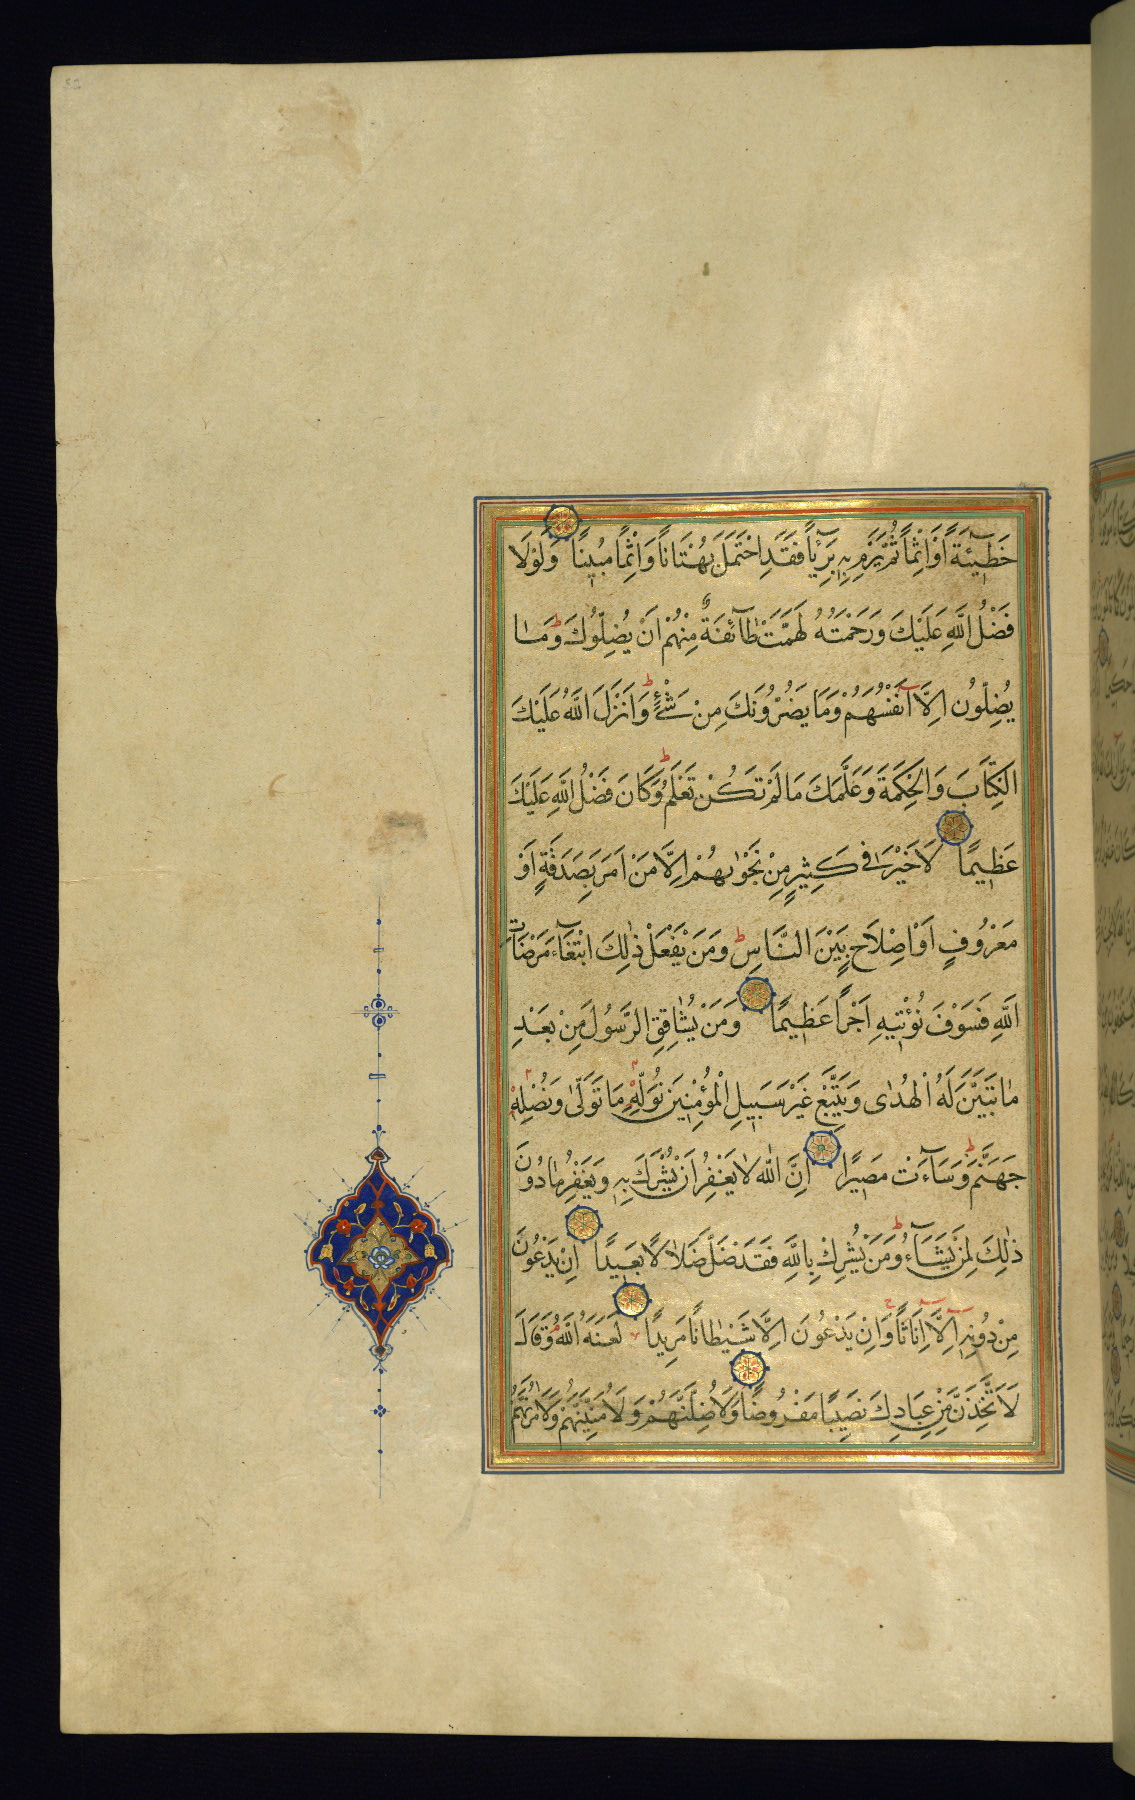 خَطِيئَةً أَوْ اِثْمًا ثُمَّ يَرْمِ بِهِ بَرِيئًا فَقَدِ احْتَمَلَ بُهْتَانًا وَاِثْمًا مُبِينًا وَلَوْلَا
فَضْلُ اللَّهِ عَلَيْكَ وَرَحْمَتُهُ لَهَمَّتْ طَآئِفَةٌ مِنْهُمْ اَنْ يُضِلُّوكَ ط وَمَا
يُضِلُّونَ اِلَّآ اَنْفُسَهُمْ وَمَا يَضُرُّونَكَ مِنْ شَىْءٍ ط وَاَنْزَلَ اللَّهُ عَلَيْكَ
الْكِتَابَ وَالْحِكْمَةَ وَعَلَّمَكَ مَا لَمْ تَكُنْ تَعْلَمُ ط وَكَانَ فَضْلُ اللَّهِ عَلَيْكَ
عَظِيمًا لَا خَيْرَ فِى كَثِيرٍ مِنْ نَجْوٰيهُمْ اِلَّا مَنْ اَمَرَ بِصَدَقَةٍ اَوْ
مَعْرُوفٍ اَوْ اِصْلَاحٍ بَيْنَ النَّاسِ ط وَمَنْ يَفْعَلْ ذٰلِكَ ابْتِغَآءَ مَرْضَاتِ
اللَّهِ فَسَوْفَ نُؤْتِيهِ اَجْرًا عَظِيمًا وَمَنْ يُشَاقِقِ الرَّسُولَ مِنْ بَعْدِ
مَا تَبَيَّنَ لَهُ الْهُدٰى وَيَتَّبِعْ غَيْرَ سَبِيلِ الْمُؤْمِنِينَ نُوَلِّهِ مَا تَوَلّٰى وَنُصْلِهِ
جَهَنَّمَ ط وَسَآءَتْ مَصِيرًا اِنَّ اللَّهَ لَا يَغْفِرُ اَنْ يُشْرَكَ بِهِ وَيَغْفِرُ مَا دُونَ
ذٰلِكَ لِمَنْ يَشَآءُ ط وَمَنْ يُشْرِكْ بِاللَّهِ فَقَدْ ضَلَّ ضَلَالًا بَعِيدًا اِنْ يَدْعُونَ
مِنْ دُونِهِ اِلَّآ اِنَاثًا ج وَاِنْ يَدْعُونَ اِلَّا شَيْطَانًا مَرِيدًا لَعَنَهُ اللَّهُ وَقَالَ
لَاَتَّخِذَنَّ مِنْ عِبَادِكَ نَصِيبًا مَفْرُوضًا وَلَاُضِلَّنَّهُمْ وَلَاُمَنِّيَنَّهُمْ وَلَاٰمُرَنَّهُمْ